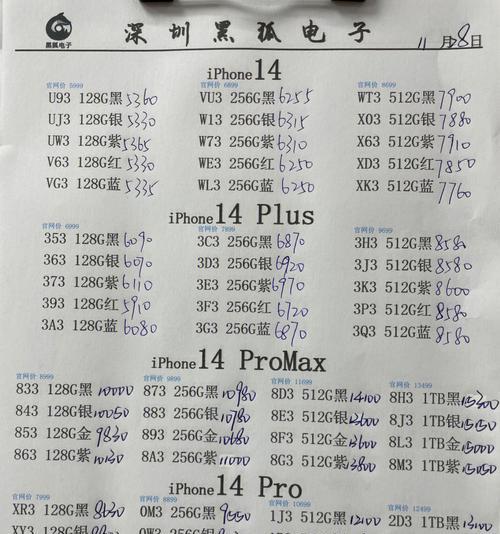 黑狐电子 深圳黑狐电子 11月8日
iPhone14
官网价 5999 官网价 6899 官网价 8699
U93 128G黑 5360 VU3 256G黑 6255 WT3 512G黑 7900
UJ3 128G银 5330 W13 256G银 6315 X03 512G银 7880
UW3 128G紫 5365 W73 256G紫 6310 X63 512G紫 7910
V63 128G红 5330 WE3 256G红 6250 XD3 512G红 7850
VG3 128G蓝 5335 WL3 256G蓝 6250 XK3 512G蓝 7760
iPhone14 Plus
官网价 6999 官网价 7899 官网价 9699
353 128G黑 6090 3C3 256G黑 6870 3H3 512G黑 8580
363 128G银 6070 3D3 256G银 6920 3J3 512G银 8580
373 128G紫 6110 3E3 256G紫 6970 3K3 512G紫 8600
393 128G红 5910 3F3 256G红 6720 3P3 512G红 8580
3A3 128G蓝 6080 3G3 256G蓝 6870 3Q3 512G蓝 8580
iPhone14 ProMax
官网价 8999 官网价 9899 官网价 11699 官网价 13499
833 128G黑 10000 873 256G黑 10980 8D3 512G黑 14100 8H3 1TB黑 15300
843 128G银 10050 883 256G银 10980 8E3 512G银 13600 8J3 1TB银
853 128G金 9830 893 256G金 10680 8F3 512G金 13600 8L3 1TB金 15000
863 128G紫 10130 8A3 256G紫 11000 8G3 512G紫 13800 8M3 1TB紫 15050
iPhone14 Pro
官网价 7999 官网价 8899 官网价 10699 官网价 12499
XR3 128G黑 8630 0M3 256G黑 9550 1J3 512G黑 12100 2D3 1TB黑 13100
XY3 128G银 0W3 256G银